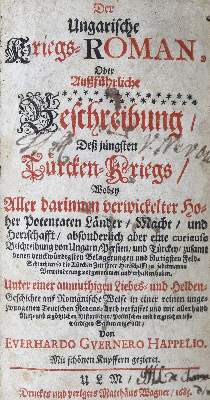 Der
Ungarische
Kriegs-ROMAN,
Oder
Außführliche
Beschreibung/
Deß jüngsten
Türcken-Kriegs/
Wobey
Aller darinnen verwickelter Ho-
her Potentaten Länder/ Macht/ und
Herrschafft/ absonderlich aber eine curieuse
Beschreibung von Ungarn, Persien, und Türckey/ zusamt
denen denckwürdigsten Belagerungen und blutigsten Feld-
Unter einer anmuthigen Liebes- und Helden-
Geschichte auf Romanische Weise in einer reinen unge-
zwungenen Teutschen Redens-Arth verfasset und mit allerhand
Von
EVERHARDO GVERNERO HAPPELIO.
Mit schönen Kupffern gezieret.
ULM/
Druckts und verlegts Matthæus Wagner/ 1685.